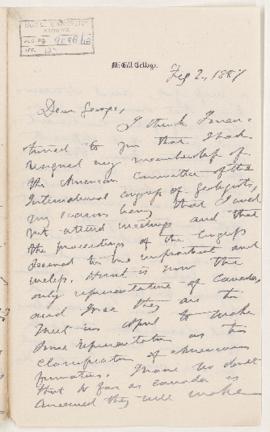 McGill College.
Feb 2, 1887
Dear George,
I think I men-
tioned to you that I had
resigned my membership of
the American Committee of the
International Congress of Geologists,
my reasons being that I could
not attend meetings and that
the proceedings of the Congress
seemed to me unprofitable and
useless. Hunt is now the
only representative of Canada,
and I see they are to
meet in April to make
some representation as to
classification of American
formations. I have no doubt
that so far as Canada is
concerned they will make